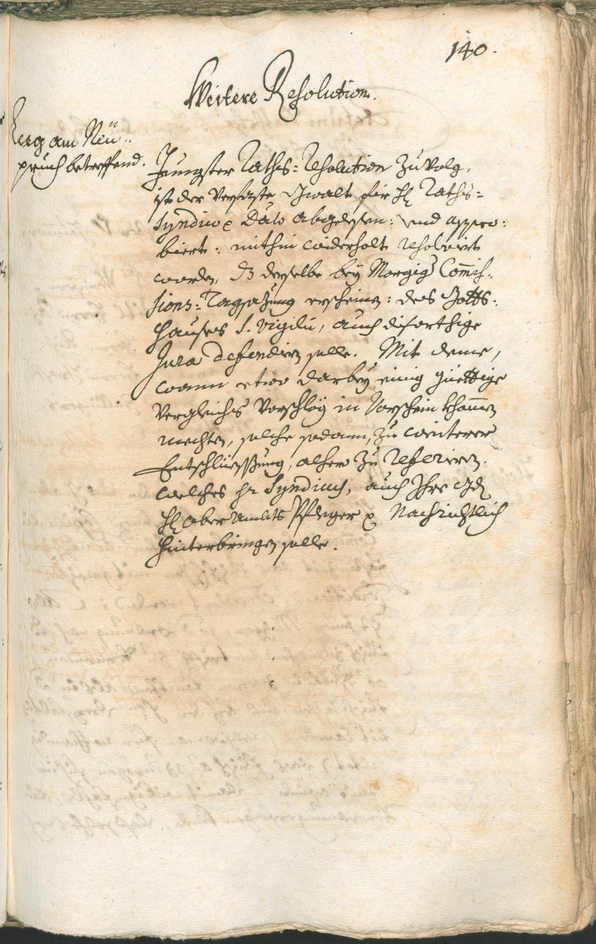 140.
Weitere Resolution.
Steeg am Neü„
pruch betreffend.
Jüngster Raths: Resolution zuvolg,
ist der verfaste Gwalt für H: Raths:
Syndico Dato abgelesen: und appro:
biert: mithin widerholt resolviert
worden, dz derselbe bey Morgigs Com̄is:
sions: Tagsazung erscheinen: des Gotts:
hauses S. Vigilii, auch disorthige
Jura defendirn solle. Mit deme,
wann etwo darbey einig güettige
Vergleichs Vorschlög in Vorschein khommen
mechten, solche sodann, zu weiterer
Entschlüessung, alhero zu referiren.
welches Hr: Syndicus, auch Ihro
H: ober Ambts Pfleger Nachrichtlich
hinterbringen solle.